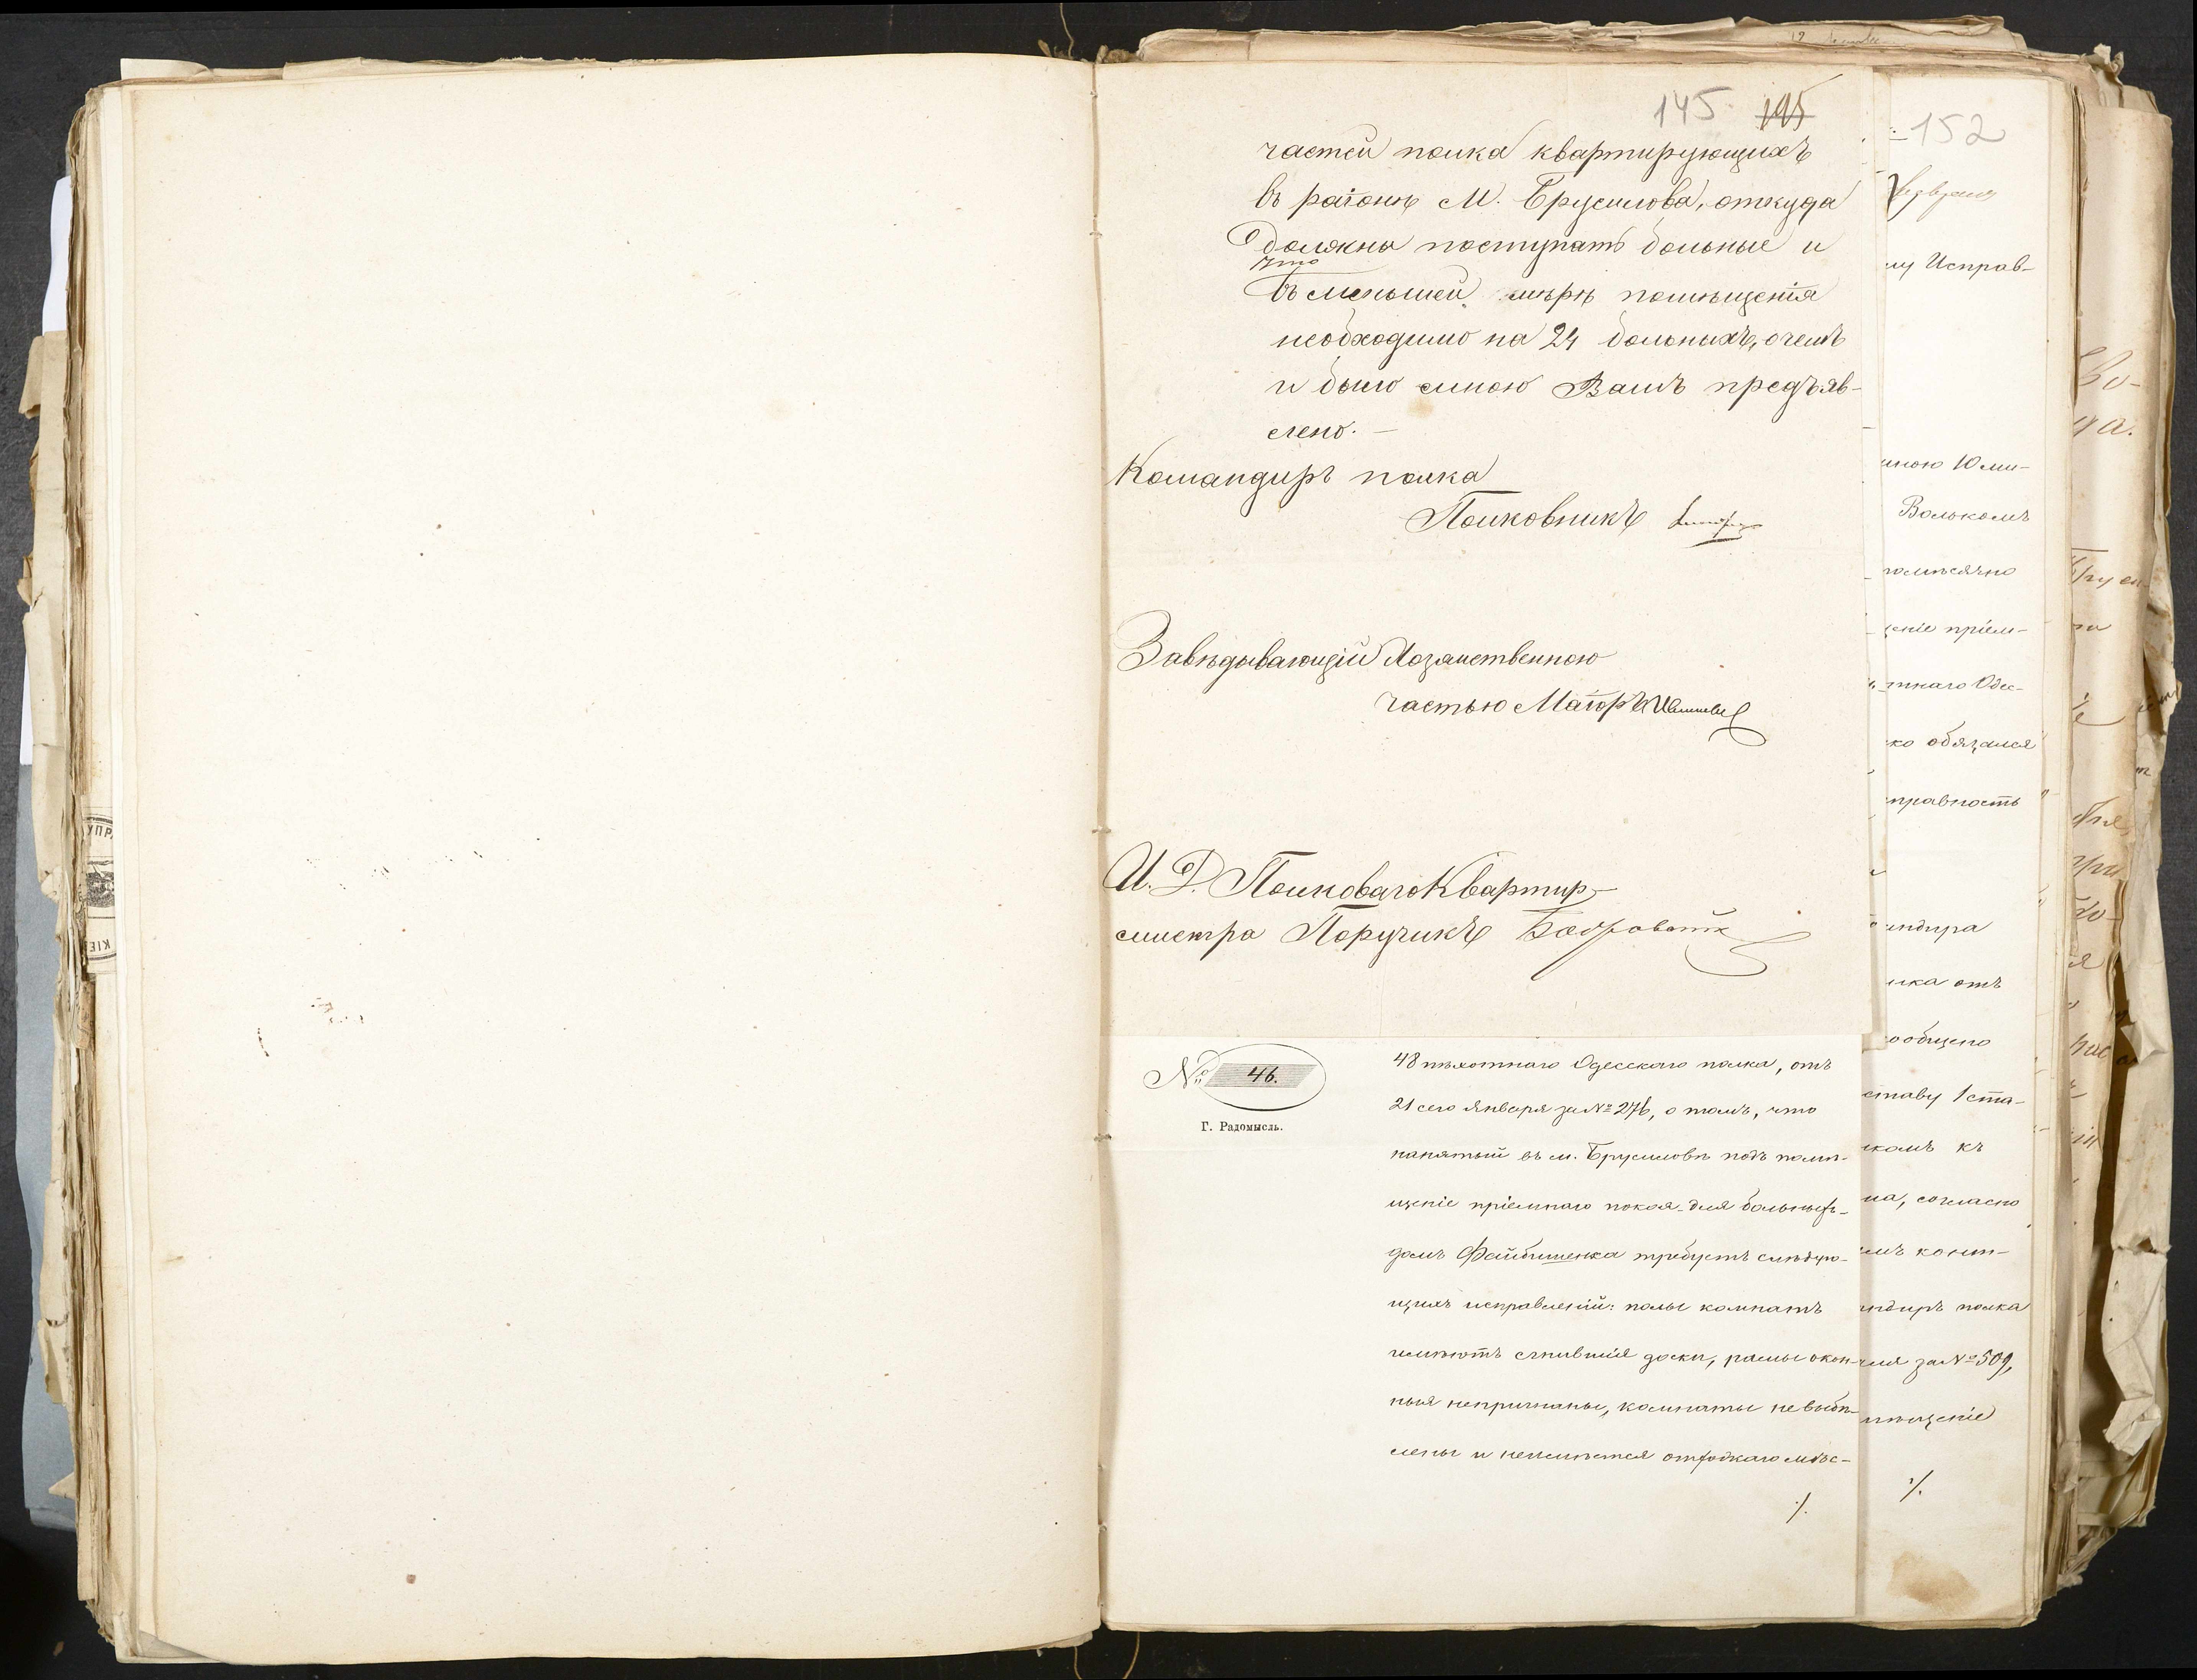 145 195
частей полка квартирующихъ
въ раіонѣ М. Брусилова, откуда
должны поступать больные и
что
въ меньшей мѣрѣ помѣщенія
необходимо на 24 больныхъ, о чемъ
и было мною Вамъ предъяв-
лено. —
Командиръ полка
Полковникъ
Завѣдывающій Хозяйственною
частью Маіоръ
И. Д. Полковаго Квартир-
мистра Поручикъ
№ 46.
Г. Радомысль.
48 пѣхотнаго Одесскаго полка, отъ
21 сего Января за № 276, о томъ, что
нанятый въ м. Брусиловѣ подъ помѣ-
щеніе пріемнаго покоя для больныхъ-
домъ Файбишенка требуетъ слѣдую-
щихъ исправленій: полы комнатъ
имѣютъ сгнившія доски, рамы окон-
ныя непригнаны, комнаты не выбѣ-
лены и неимѣется отхожаго мѣс-
./.
152
му Исправ-
мною Юми-
Волькомъ
помѣсячно
щеніе пріем-
тнаго Одес-
ко обязался
справность
андира
лка отъ
сообщено
ставу 1 ста-
комъ къ
на, согласно
емъ конт-
андиръ полка
за № 509,
мѣщеніе
./.
Во-
УПР
КІЕ